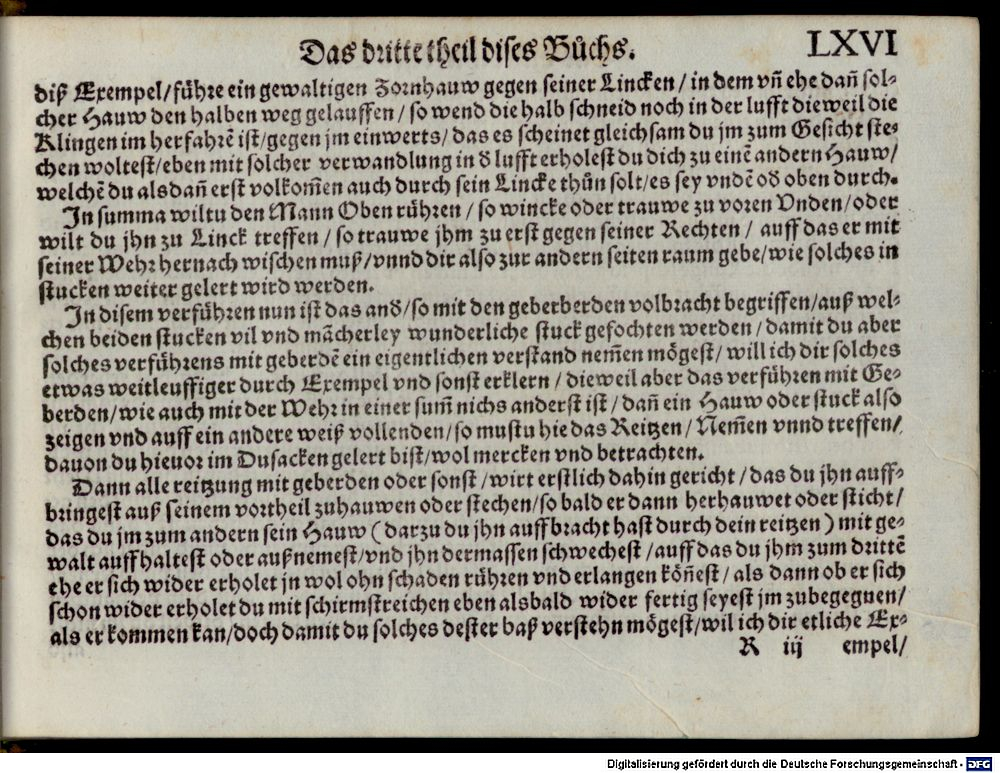 Das dritte theil dises Bůchs. LXVI
diß Exempel/führe ein gewaltigen Zornhauw gegen seiner Lincken/in dem vñ ehe dañ sol⸗
cher Hauw den halben weg gelauffen/so wend die halb schneid noch in der lufft dieweil die
Klingen im herfahrẽ ist/gegen jm einwerts/das es scheinet gleichsam du jm zum Gesicht ste⸗
chen woltest/eben mit solcher verwandlung in ď lufft erholest du dich zu einẽ andern Hauw/
welchẽ du alsdañ erst volkom̃en auch durch sein Lincke thůn solt/es sey vndẽ oď oben durch.
In summa wiltu den Mann Oben rühren/so wincke oder trauwe zu voren Vnden/oder
wilt du jhn zu Linck treffen/so trauwe jhm zu erst gegen seiner Rechten/auff das er mit
seiner Wehr hernach wischen muß/vnnd dir also zur andern seiten raum gebe/wie solches in
stucken weiter gelert wird werden.
In disem verführen nun ist das anď/so mit den geberberden volbracht begriffen/auß wel⸗
chen beiden stucken vil vnd mãcherley wunderliche stuck gefochten werden/damit du aber
solches verführens mit geberdẽ ein eigentlichen verstand nem̃en mögest/will ich dir solches
etwas weitleuffiger durch Exempel vnd sonst erklern/dieweil aber das verführen mit Ge⸗
berden/wie auch mit der Wehr in einer sum̃ nichs anderst ist/dañ ein Hauw oder stuck also
zeigen vnd auff ein andere weiß vollenden/so mustu hie das Reitzen/Nem̃en vnnd treffen/
dauon du hieuor im Dusacken gelert bist/wol mercken vnd betrachten.
Dann alle reitzung mit geberden oder sonst/wirt erstlich dahin gericht/das du jhn auff⸗
bringest auß seinem vortheil zuhauwen oder stechen/so bald er dann herhauwet oder sticht/
das du jm zum andern sein Hauw (darzu du jhn auffbracht hast durch dein reitzen) mit ge⸗
walt auffhaltest oder außnemest/vnd jhn dermassen schwechest/auff das du jhm zum drittẽ
ehe er sich wider erholet jn wol ohn schaden rühren vnd erlangen köñest/als dann ob er sich
schon wider erholet du mit schirmstreichen eben alsbald wider fertig seyest jm zubegegnen/
als er kommen kan/doch damit du solches dester baß verstehn mögest/wil ich dir etliche Ex⸗
R iij empel/
Digitalisierung gefördert durch die Deutsche Forschungsgemeinschaft - DFG